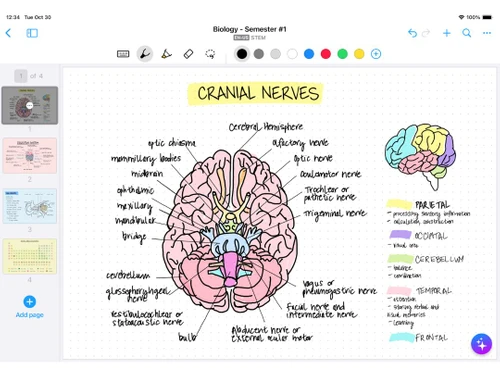 12:34 Tue Oct 30
100%
Biology - Semester #1
STEM
1 of 4
1
2
3
4
Add page
CRANIAL NERVES
Cerebral Hemisphere
optic chiasma
olfactory nerve
mammillary bodies
optic nerve
midbrain
oculomotor nerve
ophthalmic
Trochlear or
pathetic nerve
maxillary
mandibular
Trigeminal nerve
bridge
cerebellum
glossopharyngeal
nerve
vagus or
pneumogastric nerve
vestibulocochlear or
statoacustic nerve
Facial nerve and
intermediate nerve
bulb
Abducent nerve or
external ocular motor
PARIETAL
- processing sensory information
OCCIPITAL
- visual area
CEREBELLUM
- balance
- coordination
TEMPORAL
visual memories
- learning
FRONTAL